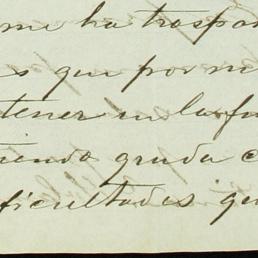 me ha traspa
s que por m
tener en la fu
iendo gruda c
ficultades qu